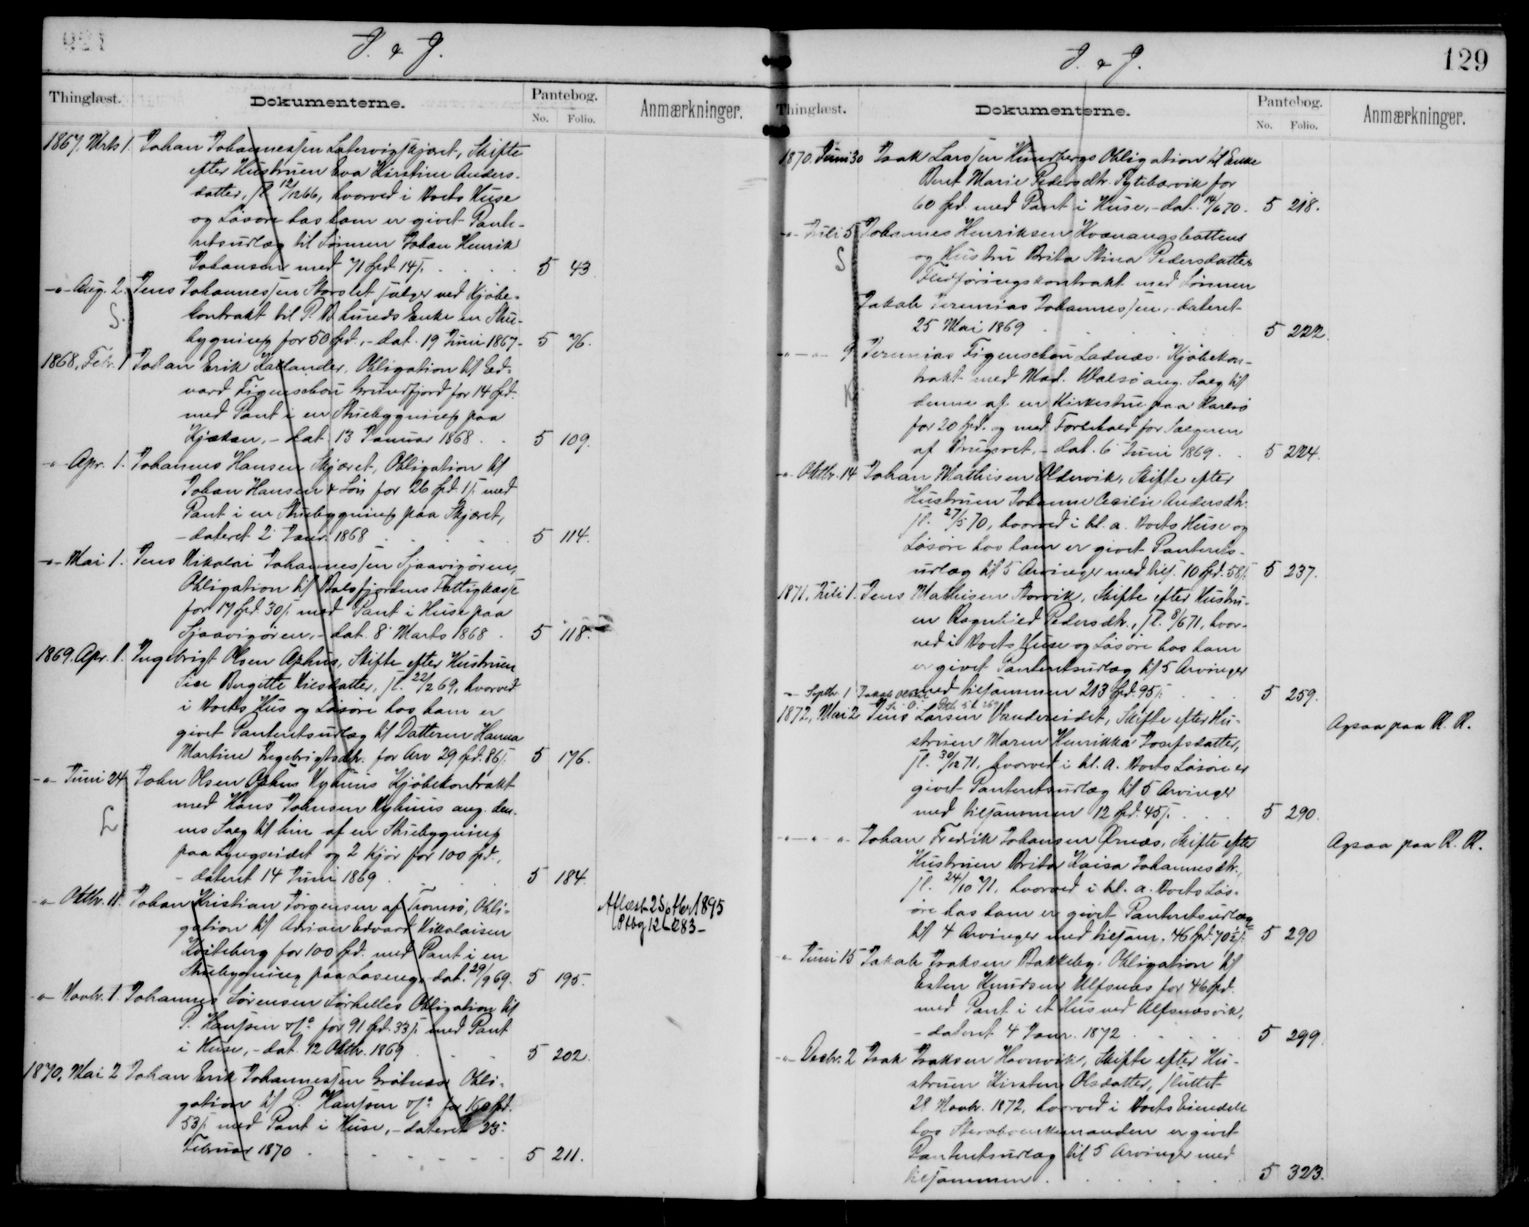 I. & J.
Thinglæst. Dokumenterne. Pantebog. No. Folio. Anmærkninger.
1867, Mrts 1. Johan Johannessen Løkervigskjæret, Skifte
efter Hustruen Eva Kirstine Anders-
datter, sl. 12/1266, hvorved i Boets Huse
og Løsøre hos ham er givet Pante-
retsudlæg til Sønnen Johan Henrik
Johansen med 71 spd. 14 s. 5 43
-"- Aug. 2. Jens Johannessen Storslet sælger ved Kjøbe-
kontrakt til P. A. Lunds Enke en Stue-
bygning for 50 spd., - dat. 19 Juni 1867. 5 76.
S.
1868, Febr. 1 Johan Erik Kallander, Obligation til Ed-
vard Figenschou Grundfjord for 14 spd.
med Pant i en Stuebygning paa
Kjækan, - dat. 13 Januar 1868. 5 109.
-"- Apr. 1. Johannes Hansen Skjæret, Obligation til
Johan Hansen & Søn for 26 spd. 1 s. med
Pant i en Stuebygning paa Skjæret,
- dateret 2 Janr. 1868 5 114.
-"- Mai 1. Jens Nikolai Johannessen Sjaavigøren,
Obligation til Balsfjordens Fattigkasse
for 17 spd. 30 s. med Pant i Huse paa
Sjaavigøren, - dat. 8 Marts 1868. 5 118.
1869. Apr. 1. Ingebrigt Olsen Aphus, Skifte efter Hustruen
Siri Birgitte Nilsdatter, sl. 22/2 69, hvorved
i Boets Hus og Løsøre hos ham er
givet Panteretsudlæg til Datteren Hanna
Martine Ingebrigtsdtr. for Arv 29 spd. 86 s. 5 176.
-"- Juni 24 John Olsen Aphus Nyhuus Kjøbekontrakt
med Hans Johnsen Nyhuus ang. den-
nes Salg til hin af en Stuebygning
paa Lyngseidet og 2 Kjør for 100 spd.,
- dateret 14 Juni 1869 5 184.
-"- Oktbr. 11. Johan Kristian Jørgensen af Tromsø, Obli-
gation til Adrian Edvard Nikolaisen
Hviteberg for 100 spd. med Pant i en
Stuebygning paa Laseng, dat. 29/9 69. 5 195.
Aflæst 2 Septbr. 1895
Ptbg 12 L 283 -
-"- Novbr. 1. Johannes Sørensen Sørhelles Obligation til
P. Hanssen & Co for 91 spd. 33 s. med Pant
i Huse, - dat. 12 Oktbr. 1869 5 202.
1870, Mai 2 Johan Erik Johannessen Grøtnæs Obli-
gation til P. Hanssen & Co for 160 spd.
53 s. med Pant i Huse, - dateret 25
Februar 1870 5 211.
I. & J. 129
Thinglæst. Dokumenterne. Pantebog. No. Folio. Anmærkninger.
1870. Juni 30 Isak Larssen Hundbergs Obligation til Enke
Beret Marie Pedersdtr. Rytebærvik for
60 spd. med Pant i Huse, - dat. 14/6 70. 5 218.
-"- Juli 5 Johannes Henriksen Kvænangsbottens
og Hustru Brita Stina Pedersdatter
Fledføringskontrakt med Sønnen
Jakob Jeremias Johannessen, - dateret
25 Mai 1869 5 222.
S
-"- -"- 9 Jeremias Figenschou Ladnæs. Kjøbekon-
trakt med Mad. Walsø ang. Salg til
denne af en Kirkestue paa Karlsø
for 20 spd. og med Forbehold for Sælgeren
af Brugsret, - dat. 6 Juni 1869. 5 224.
-"- Oktbr. 14 Johan Mathisen Oldervik, Skifte efter
Hustruen Johanne Cecilie Andersdtr.
sl. 27/5 70, hvorved i bl. a. Boets Huse og
Løsøre hos ham er givet Panterets-
udlæg til 5 Arvinger med tils. 10 spd. 58 s. 5 237.
1871. Juli 1. Jens Mathisen Storvik, Skifte efter Hustru-
en Ragnhild Pedersdtr., sl. 8/6 71, hvor-
ved i Boets Huse og Løsøre hos ham
er givet Panteretsudlæg til 5 Arvinger
med tilsammen 213 spd. 95 s. 5 259.
-"- Septbr. 1 Jakob Olsen
1872, Mai 2 Jens Larsen Vandereidet, Skifte efter Hu-
struen Maren Henrikka Josefsdatter,
sl. 30/12 71, hvorved i bl. a. Boets Løsøre er
givet Panteretsudlæg til 5 Arvinger
med tilsammen 12 spd. 45 s. 5 290.
Ogsaa paa R. R.
-"- -"- -"- Johan Fredrik Johansen Ørnæs, Skifte efter
Hustruen Brita Kaisa Johannesdtr.,
sl. 24/10 71, hvorved i bl. a. Boets Løs-
øre hos ham er givet Panteretsudlæg
til 4 Arvinger med tilsam. 46 spd. 70½ s. 5 290
Ogsaa paa R. R.
-"- Juni 15 Jakob Isaksen Bakkeby. Obligation til
Esten Knudsen Ulfsnæs for 46 spd.
med Pant i et Hus ved Ulfsnæsvik,
- dateret 4 Janr. 1872 5 299.
-"- Decbr. 2 Isak Isaksen Havnvik, Skifte efter Hu-
struen Kirsten Olsdatter, sluttet
28 Novbr. 1872, hvorved i Boets Eiendele
hos Skraboenkemanden er givet
Panteretsudlæg til 5 Arvinger med
tilsammen 5 323.